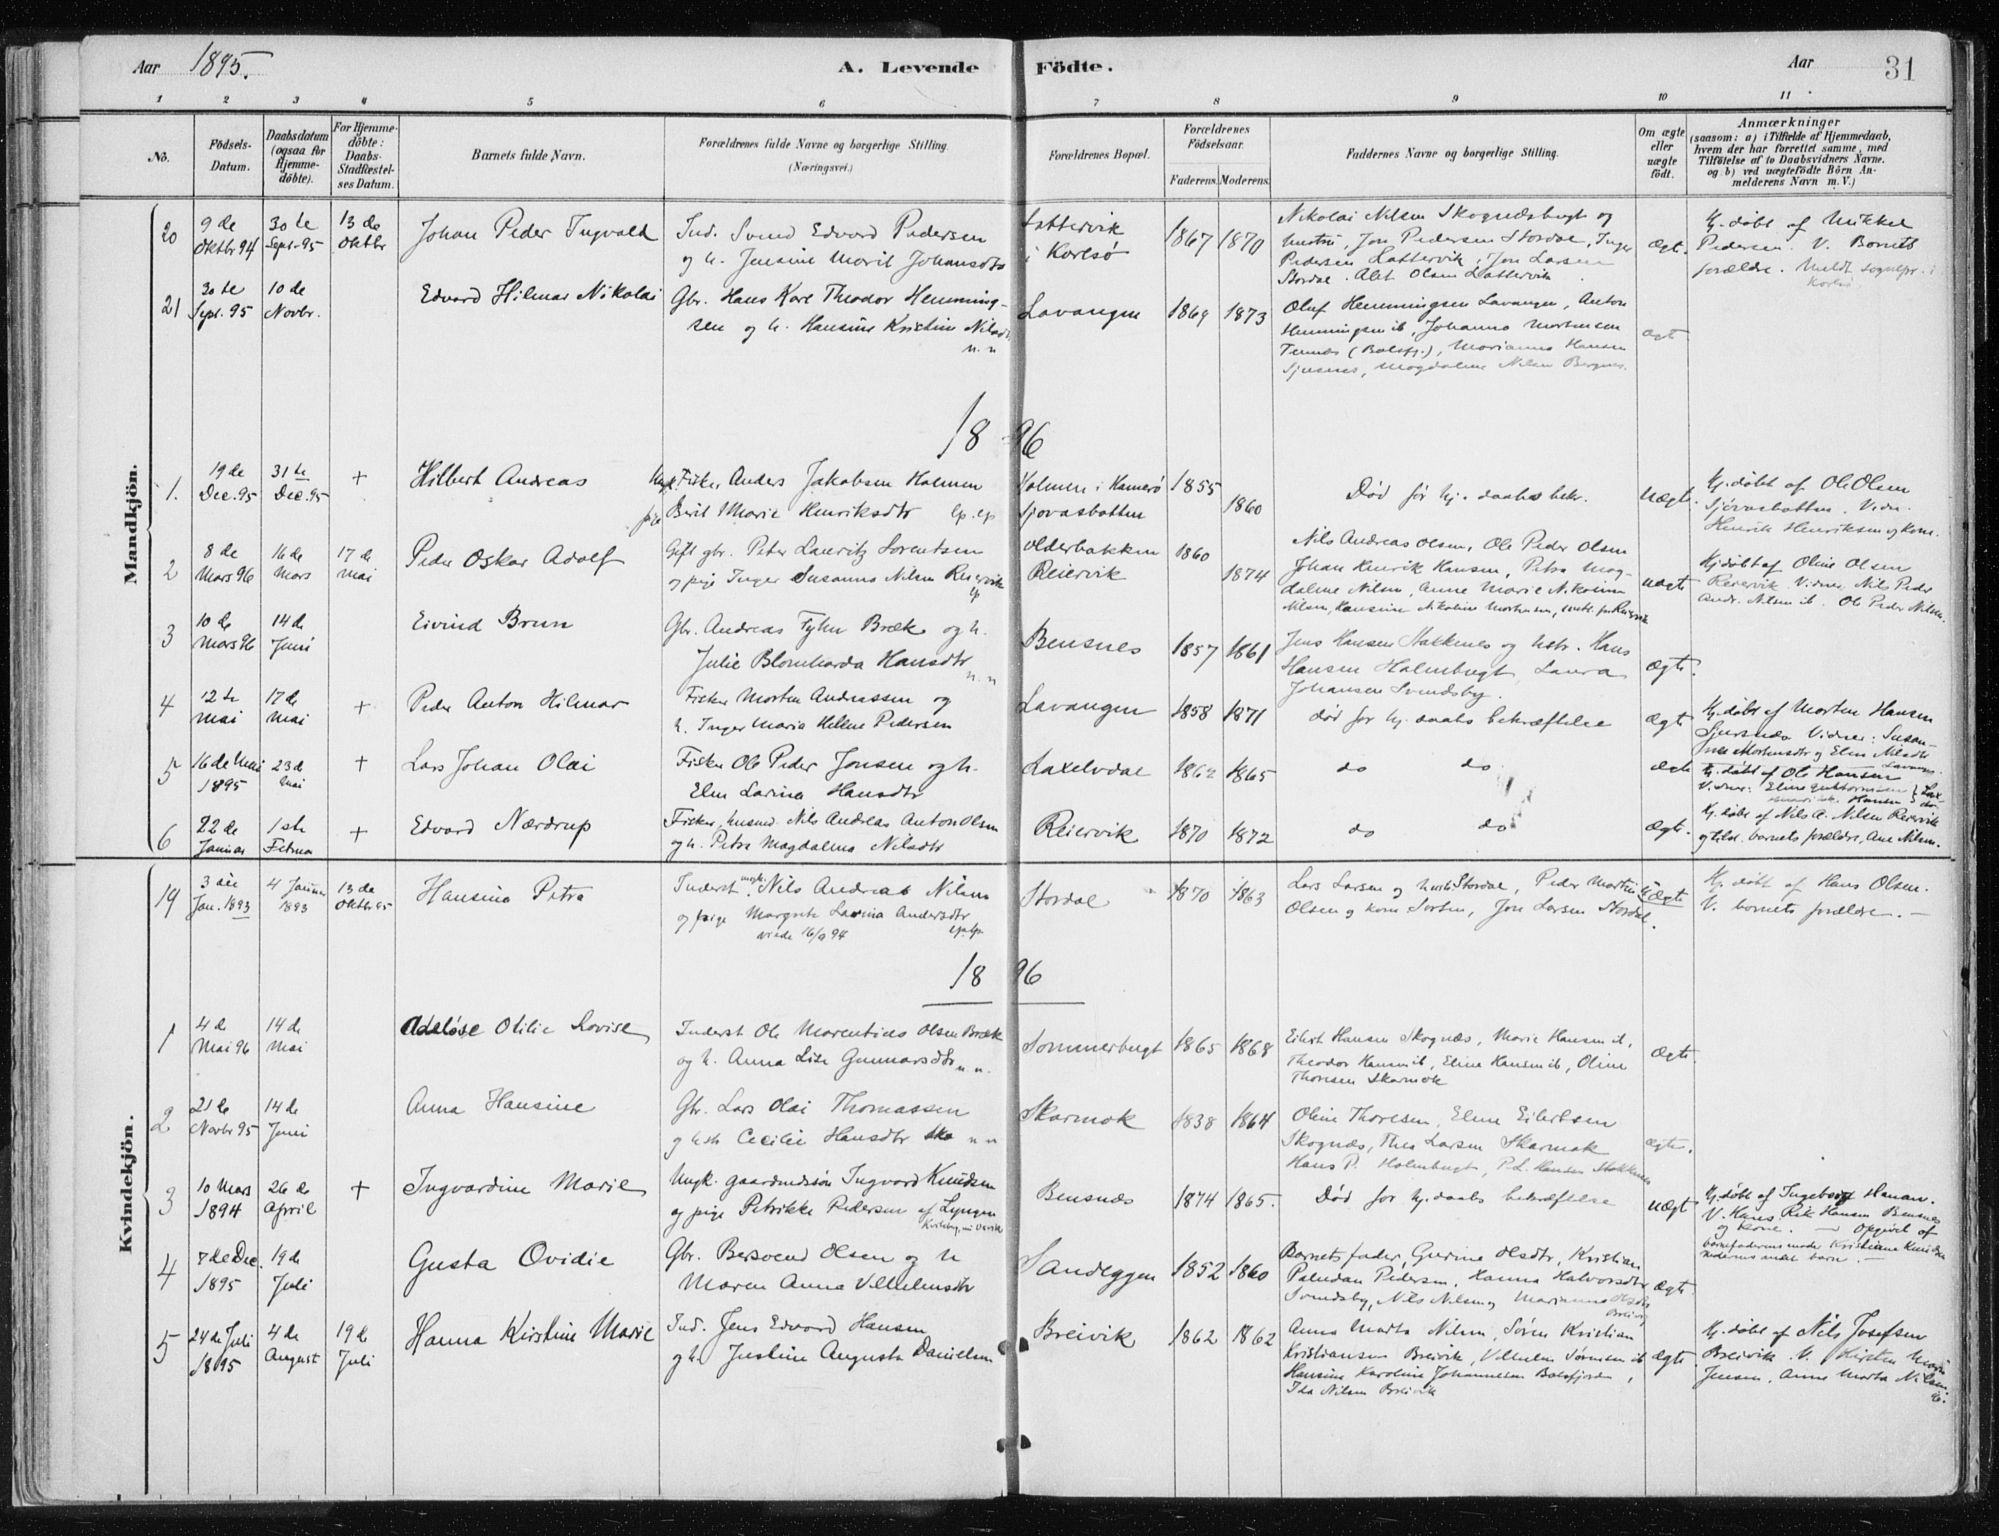 Aar 1895.
A. Levende Födte.
Aar
31
1 2 3 4 5 6 7 8 9 10 11
No.
Födsels-Datum.
Daabsdatum (ogsaa for Hjemme-döbte).
For Hjemme-döbte: Daabs-Stadfæstel-ses Datum.
Barnets fulde Navn.
Forældrenes fulde Navne og borgerlige Stilling.
(Næringsvei.)
Forældrenes Bopæl.
Forældrenes Födselsaar.
Faderens. Moderens.
Faddernes Navne og borgerlige Stilling.
Om ægte eller uægte födt.
Anmærkninger
(saasom: a) i Tilfælde af Hjemmedaab,
hvem der har forrettet samme, med
Tilföielse af to Daabsvidners Navne.
og b) ved uægtefödte Börn An-
melderens Navn m. V.)
Mandkjön.
20 9 de Oktbr 94 30 te Sept. 95 13 de Oktbr
Johan Peder Ingvald
Ind. Svend Edvard Pedersen
og h. Jensine Marit Johansdtr
Lattervik
i Karlsö
1867 1870
Nikolai Nilsen Skognæsbugt og
hustru, Jon Pedersen Stordal, Inger
Pedersen Lattervik, Jon Larsen
Stordal. Alet Olsen Lattervik
ægt.
Hj. döbt af Mikkel
Pedersen. V. Barnets
forældre. Meldt sognepr. i
Karlsö
21 30 te Sept. 95 10 de Novbr.
Edvard Hilmar Nikolai
Gbr. Hans Karl Theodor Hemming-
sen og h. Hansine Kristine Nilsdtr
n. n
Lavangen
1869 1873
Oluf Hemmingsen Lavangen, Anton
Hemmingsen ib, Johanna Mortensen
Tennæs (Balsfj.), Marianna Hansen
Sjursnes, Magdalene Nilsen Bergnes.
ægt
1896
1. 19 de Dec. 95 31 te Dec. 95 +
Hilbert Andreas
Ungk. Fisker Anders Jakobsen Holmen
pige Berit Marie Henriksdtr
Holmen i Hamerö
Sjövasbotten
1855
1860
Död för hj. daabs bekr.
uægt.
Hj. döbt af Ole Olsen
Sjövasbotten. Vidn.
Henrik Henriksen og kone.
2 8 de Mars 96 16 de Mars 17 de Mai
Peder Oskar Adolf
Gift gbr. Peter Lauritz Lorentsen
og pige Inger Susanna Nilsen Reiervik
Olderbakken
Reiervik
1860
1874
Nils Andreas Olsen, Ole Peder Olsen
Johan Henrik Hansen, Petra Mag-
dalene Nilsen, Anne Marie Nikoline
Nilsen, Hansine Nikoline Mortensen,
uægt
Hj. döbt af Oline Olsen
Reiervik. Vidner, Nils Peder
Andr. Nilsen ib. Ole Peder Nilsen.
3 10 de Mars 96 14 de Juni
Eivind Brun
Gbr. Andreas Fyhn Bræk og h.
Julie Blomharda Hansdtr
n. n
Bensnes
1857 1861
Jens Hansen Stakkenes og hstr. Hans
Hansen Holmbugt, Laura
Johansen Svendsby.
ægte.
4 12 te Mai 17 de Mai +
Peder Anton Hilmar
Fisker Morten Andreassen og
h. Inger Maria Helene Pedersen
Lavangen
1858 1871
död for hj. daabs bekræftelse
ægte
Hj. döbt af Morten Hansen
Sjursnæs Vidner: Susan-
ne Mortensdtr og Elen Nilsdtr
Lavangen
5 16 de Mai 1895 23 de Mai +
Lars Johan Olai
Fisker Ole Peder Jonsen og h.
Elen Larina Hansdtr
Laxelvdal
1862 1865
do do
ægte
Hj. döbt af Ole Hansen
6 22 de Januar 1 ste Februar +
Edvard Nærdrup
Fisker, husmd. Nils Andreas Anton Olsen
og h. Petra Magdalena Nilsdtr
Reiervik
1870 1872
do do
ægte.
Hj. döbt af Nils A. Nilsen Reiervik
barnets forældre, Ane Nilsen.
Kvindekjön.
19 3 die Jan. 1893 4 Januar 1893 13 de Oktbr 95
Hansina Petra
Inderst ungk. Nils Andreas Nilsen
og pige Margrete Lavina Andersdtr
viede 16/9 94
Stordal
1870 1863
Lars Larsen og hustr Stordal, Peder Martin
Olsen og kone Sorten, Jon Larsen Nordal.
Uægte
Hj. döbt af Hans Olsen.
V. barnets forældre. —
1896
1 4 de Mai 96 14 de Mai
Adeløse Otilie Lovise
Inderst Ole Marentius Olsen Bræk
og h. Anna Lise Gunnarsdtr n. n.
Sommerbugt
1865 1868
Eilert Hansen Skognæs, Marie Hansen ib,
Theodor Hansen ib, Eline Hansen ib, Oline
Thoresen Skarmok
ægte.
2 21 de Novbr 95 14 de Juni
Anna Hansine
Gbr. Lars Olai Thomassen
og hstr Cecilie Hansdtr n n
Skarmok
1838 1864
Oline Thoresen, Elene Eilertsen
Skognæs, Thea Larsen Skarmok
Hans P. Holmbugt, P. L. Hansen Stakkenes
ægte.
3 10 Mars 1894 26 de April +
Ingvardine Marie
Ungk. gaardmdssön Ingvard Knudsen
og pige Petrikke Pedersen af Lyngen
Bensnæs
1874 1865.
Död for hj. daabs bekræftelse
uægt
Hj. döbt af Ingeborg Hansen.
V. Hans Rik Hansen Bensnes
og kone. — Opgivet af
barnefaderens moder Kristiane Knudsen
moderens andet barn. —
4 7 de Dec. 1895 19 de Juli
Gusta Ovidie
Gbr. Bersvend Olsen og h
Maren Anna Vilhelmsdtr
Sandeggen
1852 1860
Barnets fader, Gurine Olsdtr, Kristian
Paludan Pedersen, Hanna Halvorsdtr
Svendsby, Nils Nilsen og Marianna Olsdtr
Breivik
ægte.
5 24 de Juli 1895 4 de August 19 de Juli
Hanna Kirstine Marie
Ind. Jens Edvard Hansen
og h. Justine Augusta Danielsen
Breivik
1862 1862
Anna Marta Nilsen, Sören Kristian
Kristiansen Breivik, Vilhelm Sörensen ib
Hansine Karoline Johannesen Balsfjorden,
Ida Nilsen Breivik
ægte.
Hj. döbt af Nils Josefsen
Breivik. V. Kirsten Marie
Jensen, Anne Marta Nilsen
ib.